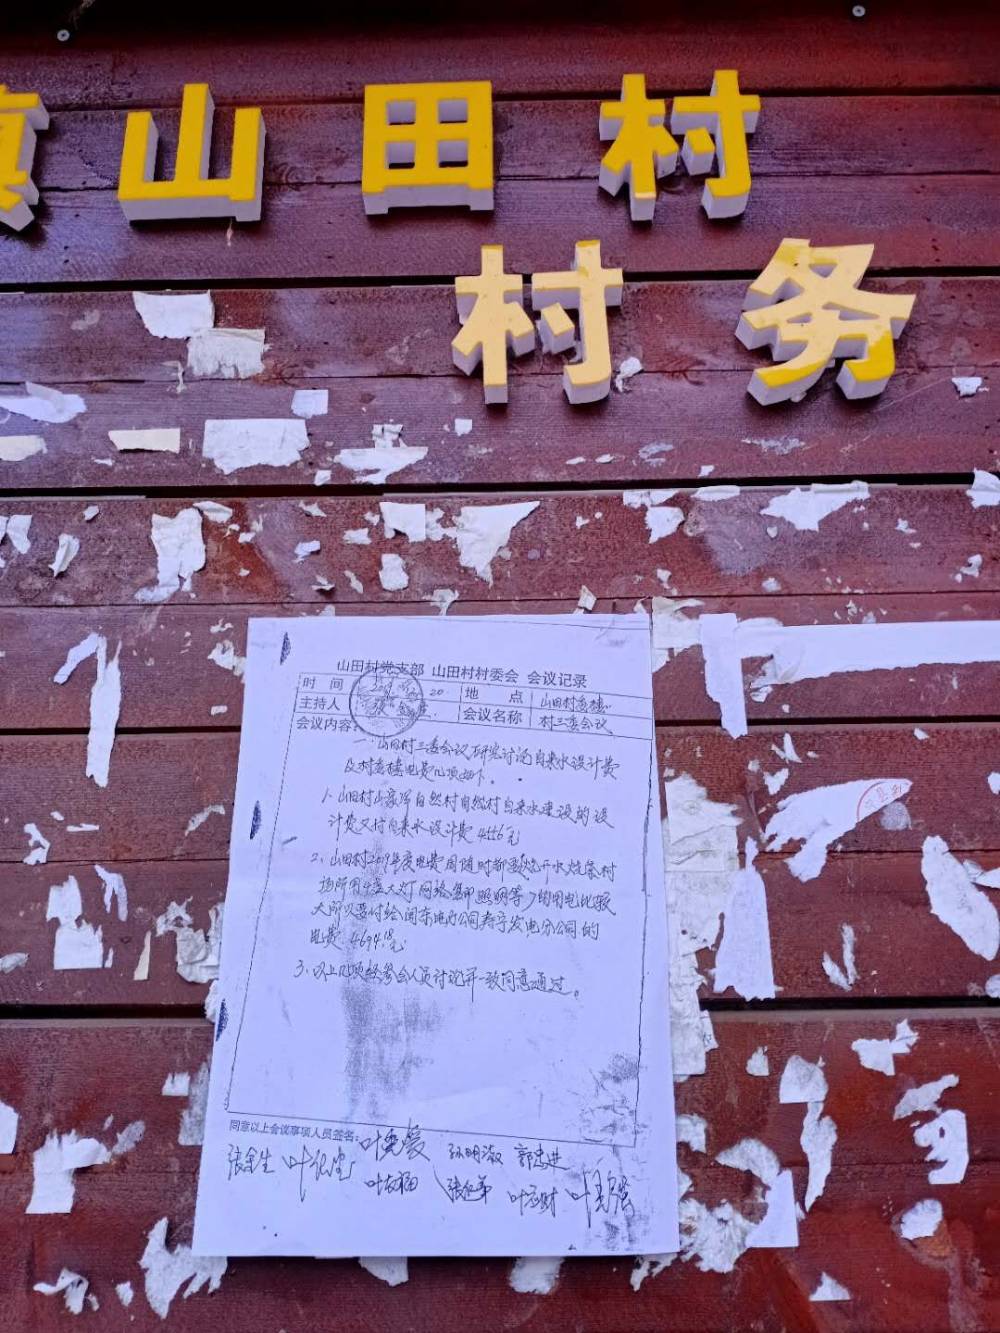 镇山田村
村务
山田村党支部 山田村村委会 会议记录
时 间 20 地 点 山田村委楼
主持人 张 会议名称 村三委会议
会议内容:
一、山田村三委会议研究讨论自来水设计费
及村委楼电费几项如下。
1、山田村山家洋自然村自然村自来水建设的设
计费又付自来水设计费4556元
2、山田村2019年度电费因随时都要烧开水
场所用 大灯 网络 照明等 的用电比较
大所以要付给闽东电力公司寿宁发电分公司的
电费4694.18元
3、以上几项经参会人员讨论并一致同意通过。
同意以上会议事项人员签名:
张 生 叶 孙明淑 郭忠进
叶 张 弟 叶 财 叶